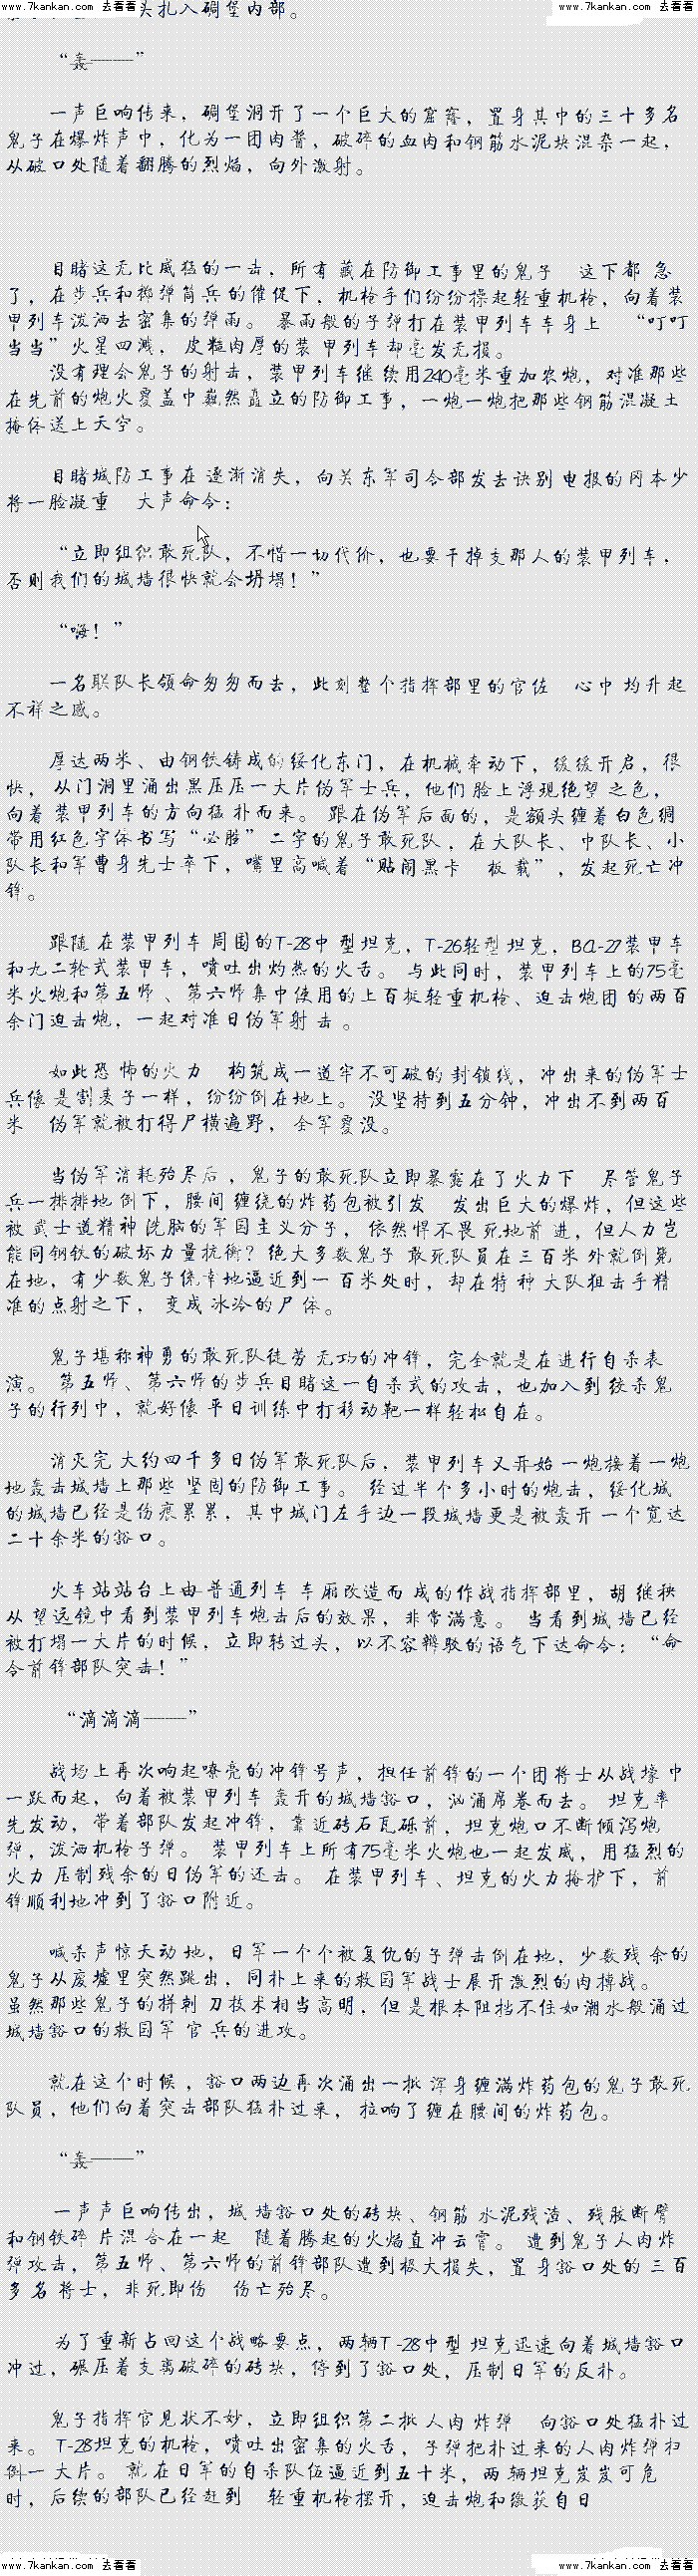 www.7kankan.com 去看看 www.7kankan.com 去看看
头扎入碉堡内部。
“轰———”
一声巨响传来，碉堡洞开了一个巨大的窟窿，置身其中的三十多名
鬼子在爆炸声中，化为一团肉酱，破碎的血肉和钢筋水泥块混杂一起，
从破口处随着翻腾的烈焰，向外激射。
目睹这无比威猛的一击，所有 藏在防御工事里的鬼子 这下都 急
了，在步兵和掷弹筒兵 的催促下，机枪手们纷纷操起轻重机枪，向着装
甲列车泼洒去密集的弹雨。 暴雨般的子弹打在装甲列车车身上 “叮叮
当当”火星四溅，皮糙肉厚的装 甲列车却毫发无损。
没有理会鬼子的射击，装甲列车继续用240毫米重加农炮，对准那些
在先前的炮火覆盖中巍然矗立的防御工事，一炮一炮把那些钢筋混凝土
掩体送上天空。
目睹城防工事在 逐渐消失，向关东军司令部发去诀别 电报的冈本少
将一脸凝重 大声命令：
“立即组织敢死队，不惜一切代价，也要干掉支那人的装甲列车，
否则我们的城墙很快就会坍塌！”
“嗨！”
一名联队长领命匆匆而去，此刻整个指挥部里的官佐 心中均升起
不祥之感。
厚达两米、由钢铁铸成的绥化东门，在机械牵动下，缓缓开启，很
快，从门洞里涌出黑压压一大片伪军士兵，他们脸上浮现绝望之色，
向着 装甲列车的方向猛扑而来。 跟在伪军后面的，是额头缠着白色绸
带用红色字体书写“必胜”二字的鬼子敢死队，在大队长、中队长、小
队长和军曹身先士卒下，嘴里高喊着“贴闹黑卡 板载”，发起死亡冲
锋。
跟随 在装甲列车 周围的T-28中 型坦克，T-26轻型 坦克，BCL-27装甲车
和九二轮式装甲车，喷吐出灼热的火舌。 与此同时，装甲列车上的75毫
米火炮和第五师、第六师集中使用的上百挺轻重机枪、迫击炮团 的两百
余门迫击炮，一起对准日伪军射 击 。
如此恐 怖的火力 构筑成一道牢不可破的 封锁线，冲出来的伪军士
兵像 是割麦子一样，纷纷倒在地上。 没坚持到五分钟，冲出不到两百
米 伪军就被打得尸横遍野，全军覆没。
当伪军消耗殆尽后 ，鬼子的敢死队立即暴露在了火力下 尽管鬼子
兵一排排地 倒下，腰间 缠绕的炸药包被引发 发出巨大的爆炸，但这些
被 武士道精神 洗脑的军国主义分子，依然悍不畏 死地前 进，但人力岂
能同钢铁的破坏力量抗衡？绝大多数鬼子 敢死队员在三百米 外就倒毙
在地，有少数鬼子侥幸地逼近到一 百米处时，却在特 种 大队狙击手精
准的点射之下， 变成 冰冷的尸 体。
鬼子堪称神勇的敢死队徒劳 无功的冲锋，完全就是在进行自杀表
演。 第五师、第六师的步兵目睹这一自杀式的攻击，也加入到绞杀鬼
子的行列中，就好像 平日训练中打移动靶一样轻松自在。
消灭完 大约四千多日伪军敢死队后，装甲列车又开始 一炮接着一炮
地轰击城墙上那些 坚固的防御工事。 经过半个多小时的炮击，绥化城
的城墙已经是伤痕累累，其中城门左手边一段城墙更是被轰开 一个宽达
二十余米的豁口。
火车站站台上由 普通列车 车厢改造而 成的作战指挥部里，胡 继秧
从 望远镜中看到装甲列车炮击后的效果，非常满意。 当看到城 墙已经
被打塌一大片的时候，立即转过头，以不容辩驳的语气下达命令：“命
令前锋部队突击！”
“滴滴滴———”
战场上再次响起嘹亮的冲锋号声，担任前锋的一个团将士从战壕 中
一跃而起，向着被装甲列车 轰开的城墙豁口，汹涌席卷而去。 坦克率
先发动，带着部队发起冲锋，靠近砖石瓦砾前，坦克炮口不断倾泻炮
弹，泼洒机枪子弹。 装甲列车上所有75毫米火炮也一起发威，用猛烈的
火力 压制残余的日伪军的还击。 在装甲列车、坦克的火力掩护下，前
锋顺利地冲到了豁口附近。
喊杀声惊天动地，日军一个个被复仇的子弹击倒在地，少数残 余的
鬼子从废墟里突然跳出，同扑上来的救国军战士展开激烈的肉搏战。
虽然那些鬼子的拼刺 刀技术相当高明，但是根本阻挡不住如潮水般涌过
城墙豁口的救国军 官 兵的进攻。
就在这个时候 ，豁口两边再次涌出一批 浑身缠满炸药包的鬼子敢死
队员，他们向着突击部队猛扑过来，拉响了缠在腰间的炸药包。
“轰———”
一声声巨响传出，城 墙豁口处的砖块、钢筋 水泥残渣、残肢断臂
和钢铁碎 片混合在一起 随着腾起的火焰直冲云霄。 遭到鬼子人肉炸
弹攻击，第五师、第六师的前锋部队遭到极大损失，置 身豁口处的 三百
多名 将士，非死即伤 伤亡殆尽。
为了重新占回这个战略要点，两辆T-28中型 坦克迅速向着城墙豁口
冲过，碾压着支离破碎的砖块，停到了豁口处，压制日军的反扑。
鬼子指挥官见状不妙，立即组织第二批 人肉 炸弹 向豁口处猛扑过
来。 T-28坦克的机枪，喷吐出密集的火舌，子弹把扑过来的人肉炸弹扫
倒一 大片。 就在日军的自杀队伍逼近到五十米，两 辆坦克岌岌可危
时，后续的部队已经赶到 轻重机枪摆开，迫击炮和缴获自日
www.7kankan.com 去看看 www.7kankan.com 去看看